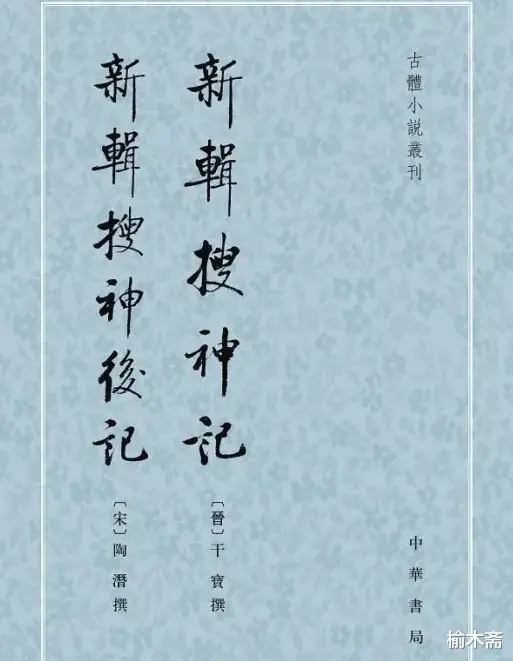 古體小説叢刊
新輯搜神記
〔晉〕干寶撰
新輯搜神後記
〔宋〕陶潛撰
中華書局
榆木斋